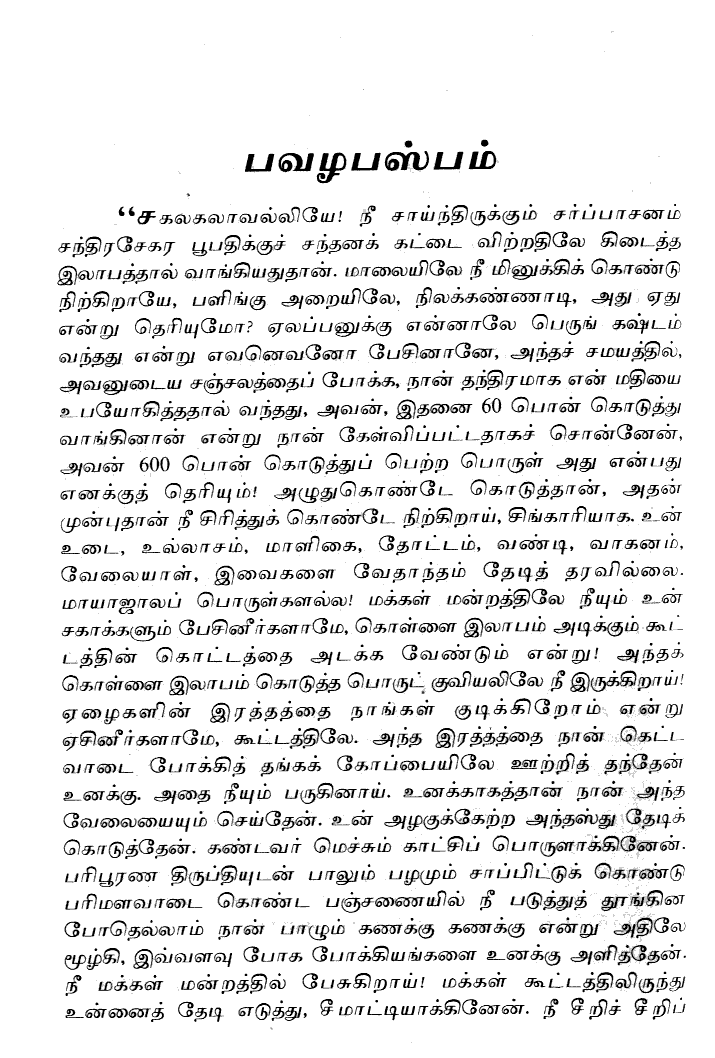 பவழபஸ்பம்
“சகலகலாவல்லியே! நீ சாய்ந்திருக்கும் சர்ப்பாசனம்
சந்திரசேகர பூபதிக்குச் சந்தனக் கட்டை விற்றதிலே கிடைத்த
இலாபத்தால் வாங்கியதுதான். மாலையிலே நீ மினுக்கிக் கொண்டு
நிற்கிறாயே, பளிங்கு அறையிலே, நிலக்கண்ணாடி, அது ஏது
என்று தெரியுமோ? ஏலப்பனுக்கு என்னாலே பெருங் கஷ்டம்
வந்தது என்று எவனெவனோ பேசினானே, அந்தச் சமயத்தில்,
அவனுடைய சஞ்சலத்தைப் போக்க, நான் தந்திரமாக என் மதியை
உபயோகித்ததால் வந்தது, அவன், இதனை 60 பொன் கொடுத்து
வாங்கினான் என்று நான் கேள்விப்பட்டதாகச் சொன்னேன்,
அவன் 600 பொன் கொடுத்துப் பெற்ற பொருள் அது என்பது
எனக்குத் தெரியும்! அழுதுகொண்டே கொடுத்தான், அதன்
முன்புதான் நீ சிரித்துக் கொண்டே நிற்கிறாய், சிங்காரியாக. உன்
உடை, உல்லாசம், மாளிகை, தோட்டம், வண்டி, வாகனம்,
வேலையாள், இவைகளை வேதாந்தம் தேடித் தரவில்லை.
மாயாஜாலப் பொருள்களல்ல! மக்கள் மன்றத்திலே நீயும் உன்
சகாக்களும் பேசினீர்களாமே, கொள்ளை இலாபம் அடிக்கும் கூட்
டத்தின் கொட்டத்தை அடக்க வேண்டும் என்று! அந்தக்
கொள்ளை இலாபம் கொடுத்த பொருட் குவியலிலே நீ இருக்கிறாய்!
ஏழைகளின் இரத்தத்தை நாங்கள் குடிக்கிறோம் என்று
ஏசினீர்களாமே, கூட்டத்திலே. அந்த இரத்த்தத்தை நான் கெட்ட
வாடை போக்கித் தங்கக் கோப்பையிலே ஊற்றித் தந்தேன்
உனக்கு. அதை நீயும் பருகினாய். உனக்காகத்தான் நான் அந்த
வேலையையும் செய்தேன். உன் அழகுக்கேற்ற அந்தஸ்து தேடிக்
கொடுத்தேன். கண்டவர் மெச்சும் காட்சிப் பொருளாக்கினேன்.
பரிபூரண திருப்தியுடன் பாலும் பழமும் சாப்பிட்டுக் கொண்டு
பரிமளவாடை கொண்ட பஞ்சணையில் நீ படுத்துத் தூங்கின
போதெல்லாம் நான் பாழும் கணக்கு கணக்கு என்று அதிலே
மூழ்கி, இவ்வளவு போக போக்கியங்களை உனக்கு அளித்தேன்.
நீ மக்கள் மன்றத்தில் பேசுகிறாய்! மக்கள் கூட்டத்திலிருந்து
உன்னைத் தேடி எடுத்து, சீமாட்டியாக்கினேன். நீ சீறிச் சீறிப்